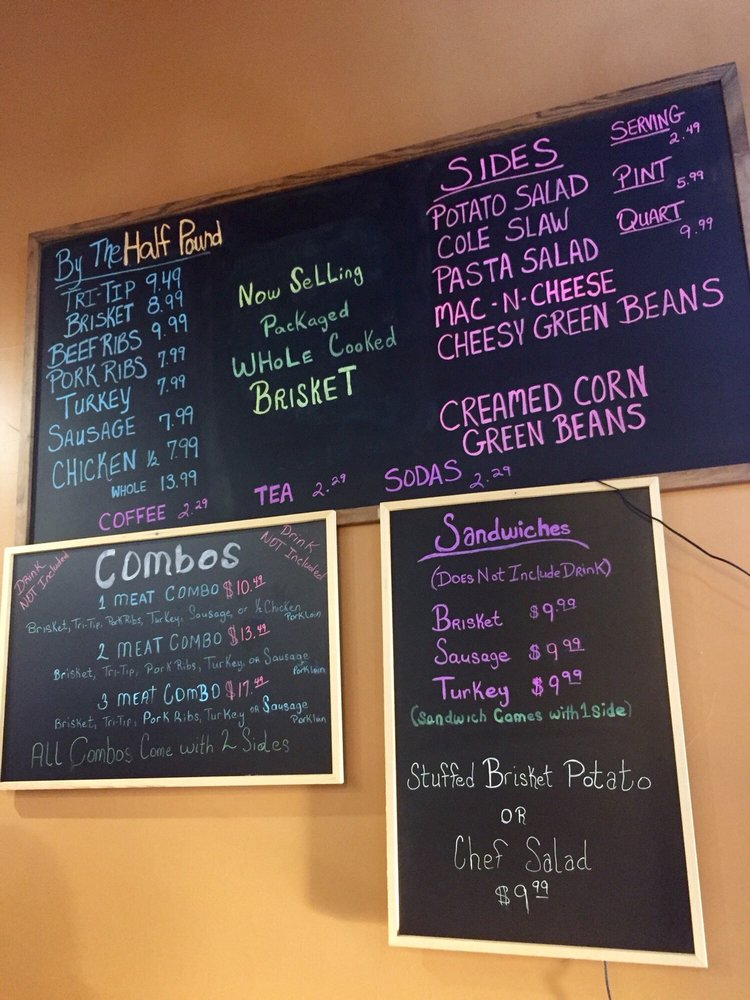 By The Half Pound
TRI-TIP 9.49
BRISKET 8.99
BEEF RIBS 9.99
PORK RIBS 7.99
TURKEY 7.99
SAUSAGE 7.99
CHICKEN ½ 7.99
WHOLE 13.99
COFFEE 2.29
Now Selling
Packaged
WHOLE Cooked
BRISKET
TEA 2.29
SIDES
POTATO SALAD
COLE SLAW
PASTA SALAD
MAC-N-CHEESE
CHEESY GREEN BEANS
CREAMED CORN
GREEN BEANS
SODAS 2.29
SERVING
2.49
PINT 5.99
QUART
9.99
DRINK
NOT Included
COMBOS
DRINK
NOT Included
1 MEAT COMBO $10.49
Brisket, Tri-Tip, Pork Ribs, Turkey, Sausage, or ½ Chicken
Pork Loin
2 MEAT COMBO $13.49
Brisket, Tri-Tip, Pork Ribs, Turkey, OR Sausage
Pork Loin
3 MEAT COMBO $17.49
Brisket, Tri-Tip, Pork Ribs, Turkey OR Sausage
Pork Loin
ALL Combos Come with 2 Sides
Sandwiches
(Does Not Include Drink)
Brisket $9.99
Sausage $9.99
Turkey $9.99
(Sandwich Comes with 1 Side)
Stuffed Brisket Potato
OR
Chef Salad
$9.99